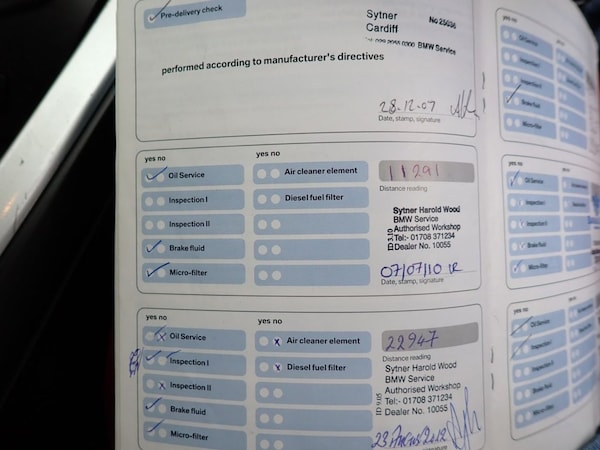 Pre-delivery check
Sytner No 25036
Cardiff
BMW Service
performed according to manufacturer's directives
28.12.07
Date, stamp, signature
yes no yes no
Oil Service Air cleaner element 11291
Inspection I Diesel fuel filter Distance reading
Inspection II Sytner Harold Wood
BMW Service
Authorised Workshop
Brake fluid Tel:- 01708 371234
Dealer No. 10055
Micro-filter 07/07/10
Date, stamp, signature
yes no yes no
Oil Service Air cleaner element 22947
Distance reading
Inspection I Diesel fuel filter Sytner Harold Wood
BMW Service
Inspection II Authorised Workshop
Tel:- 01708 371234
Brake fluid Dealer No. 10055
Micro-filter 23 August 2012
Date, stamp, signature
yes no
Oil Service
Inspection I
Inspection II
Brake fluid
Micro-filter
yes no
Oil Service
Inspection I
Inspection II
Brake fluid
Micro-filter
yes no
Oil Service
Inspection I
Inspection II
Brake fluid
Micro-filter